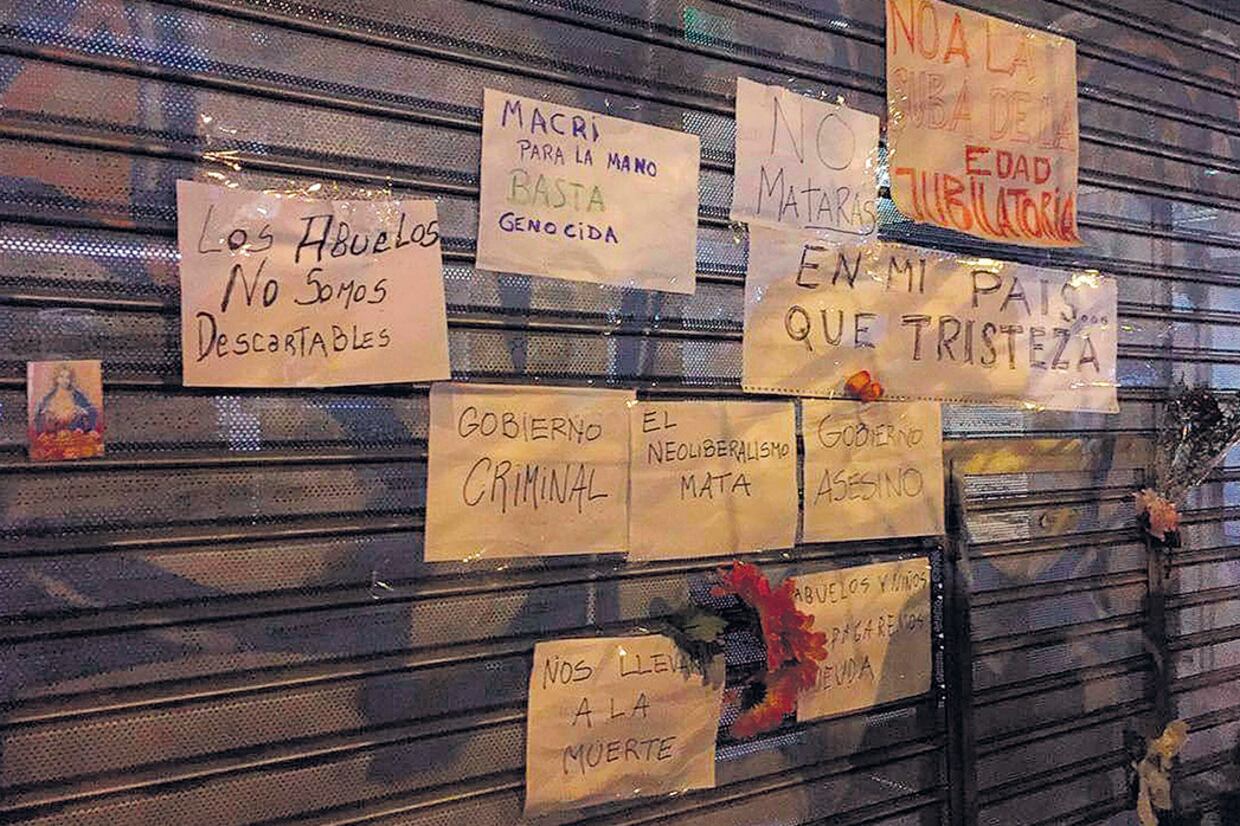 NO A LA
SUBA DE LA
EDAD
JUBILATORIA
MACRI
PARA LA MANO
BASTA
GENOCIDA
NO
MATARÁS
LOS ABUELOS
NO SOMOS
DESCARTABLES
EN MI PAIS...
QUE TRISTEZA
GOBIERNO
CRIMINAL
EL
NEOLIBERALISMO
MATA
GOBIERNO
ASESINO
ABUELOS Y NIÑOS
PAGAREMOS
DEUDA
NOS LLEVAN
A LA
MUERTE